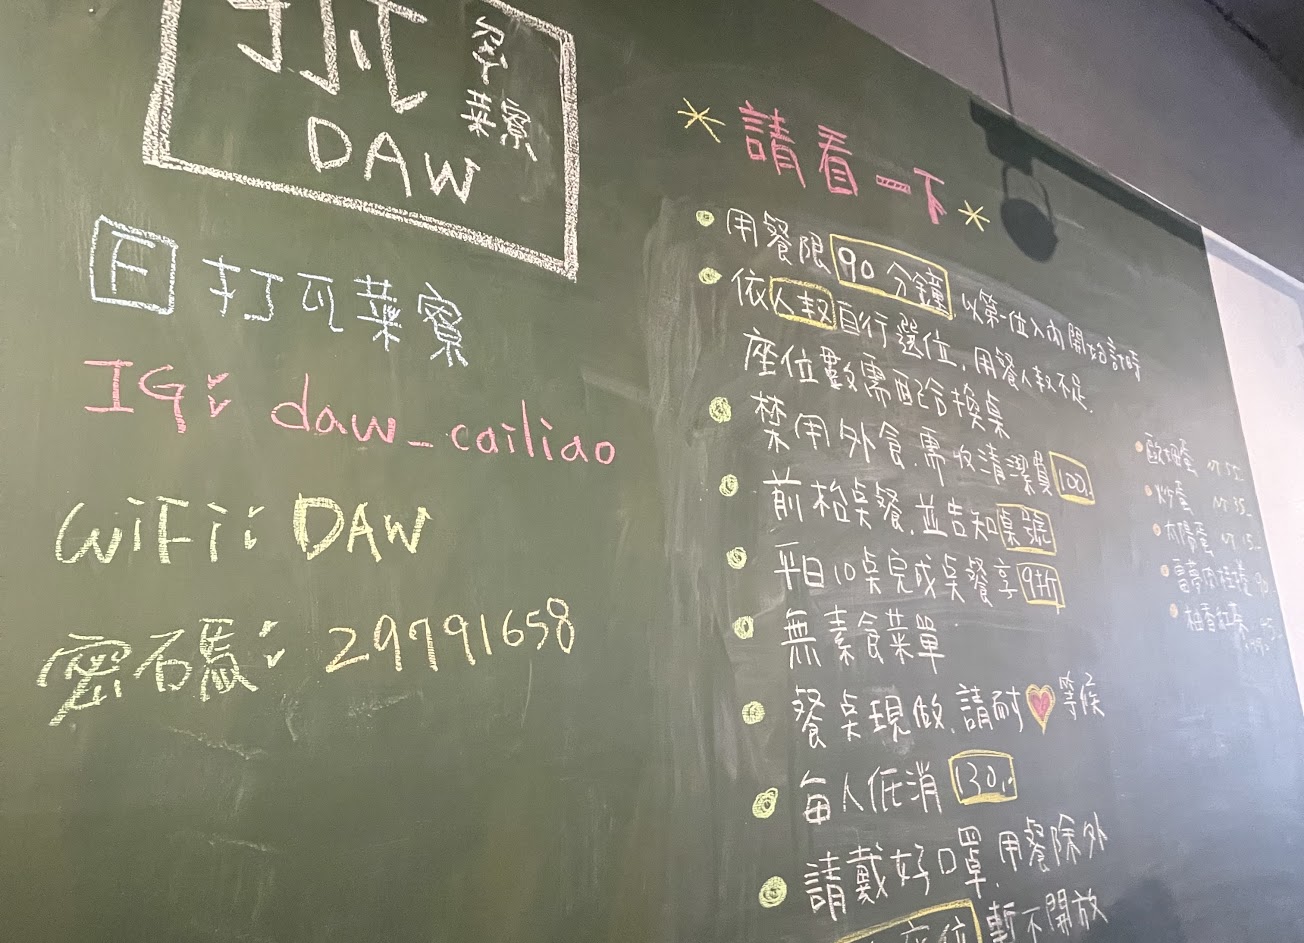 打瓦
菜寮
DAW
F 打瓦菜寮
IG: daw_cailiao
WiFi: DAW
密碼: 29791658
請看一下
用餐限90分鐘 以第一位入內開始計時
依人数自行選位.用餐人数不足.
座位數需配合換桌
禁用外食.需收清潔費100.-
前枱桌餐.並告知桌號
平日10桌完成桌餐享9折
無素食菜單
餐桌現做.請耐♥等候
每人低消130.-
請戴好口罩.用餐除外
座位 暫不開放
歐姆蛋 NT 55.-
炒蛋 NT 35.-
太陽蛋 NT 15.-